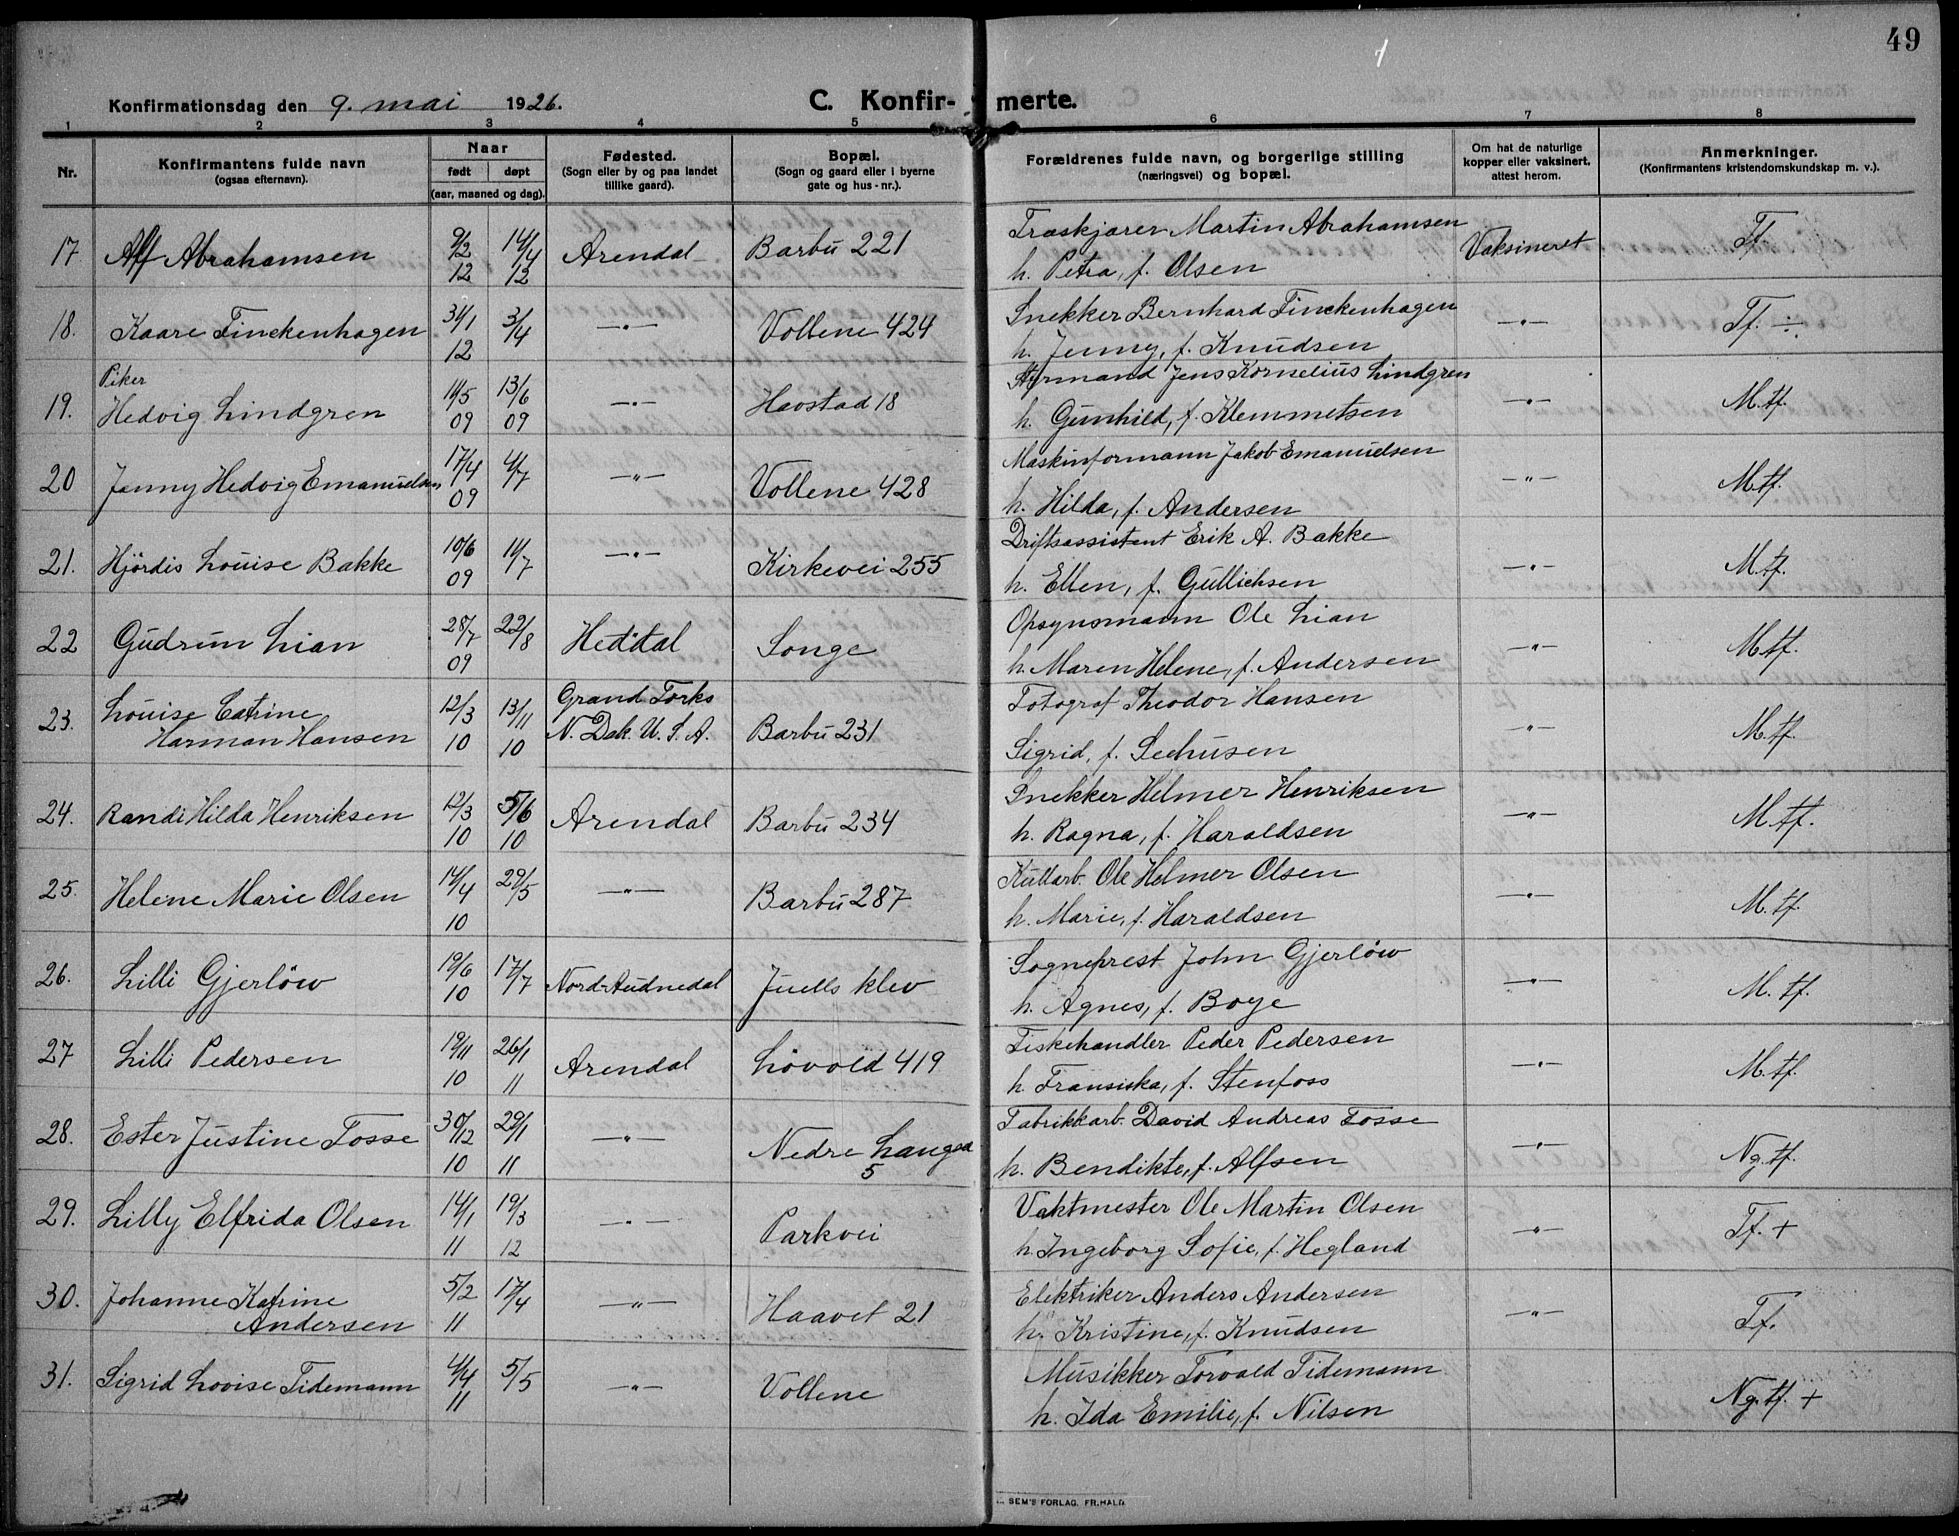 49
Konfirmationsdag den 9. mai 1926.
C. Konfir- merte.
1 2 3 4 5 6 7 8
Nr.
Konfirmantens fulde navn
(ogsaa efternavn).
Naar
født døpt
(aar, maaned og dag).
Fødested.
(Sogn eller by og paa landet
tillike gaard).
Bopæl.
(Sogn og gaard eller i byerne
gate og hus-nr.).
Forældrenes fulde navn, og borgerlige stilling
(næringsvei) og bopæl.
Om hat de naturlige
kopper eller vaksinert,
attest herom.
Anmerkninger.
(Konfirmantens kristendomskundskap m. v.).
17 Alf Abrahamsen 9/2 12 14/4 12 Arendal Barbu 221 Træskjærer Martin Abrahamsen Vaksineret Tf.
h. Petra, f. Olsen
18. Kaare Finckenhagen 31/1 12 3/4 -"- Vollene 424 Snekker Bernhard Finckenhagen -"- Tf. ÷
h. Jenny, f. Knudsen
Piker
19. Hedvig Lindgren 11/5 09 13/6 09 -"- Havstad 18 Styrmand Jens Kornelius Lindgren -"- M.tf.
h. Gunhild, f. Klemmetsen
20 Jenny Hedvig Emanuelsen 17/4 09 4/7 -"- Vollene 428 Maskinformann Jakob Emanuelsen -"- M.tf.
h. Hilda, f. Andersen
21. Hjördis Louise Bakke 10/6 09 11/7 -"- Kirkevei 255 Driftsassistent Erik A. Bakke -"- M.tf.
h. Ellen, f. Gullichsen
22 Gudrun Lian 28/7 09 22/8 Heddal Songe Opsynsmann Ole Lian -"- M.tf.
h. Maren Helene, f. Andersen
23. Louise Catrine 12/3 10 13/11 10 Grand Forks Barbu 231 Fotograf Theodor Hansen -"- M.tf.
Harman Hansen N. Dak. U. S. A. Sigrid, f. Seehusen
24. Randi Hilda Henriksen 12/3 10 5/6 10 Arendal Barbu 234 Snekker Helmer Henriksen -"- M.tf.
h. Ragna, f. Haraldsen
25. Helene Marie Olsen 14/4 10 29/5 -"- Barbu 287 Kullarb. Ole Helmer Olsen -"- M.tf.
h. Marie, f. Haraldsen
26. Lilli Gjerlöw 19/6 10 17/7 Nord-Audnedal Juells klev Sogneprest John Gjerlöw -"- M.tf.
h. Agnes, f. Boye
27 Lilli Pedersen 19/11 10 26/1 11 Arendal Lövold 419 Fiskehandler Peder Pedersen -"- M.tf.
h. Fransiska, f. Stenfoss
28. Ester Justine Fosse 30/12 10 29/1 11 -"- Nedre Langsa Fabrikkarb. David Andreas Fosse -"- Ng.tf.
5 h. Bendikte, f. Alfsen
29. Lilly Elfrida Olsen 14/1 11 19/3 12 -"- Parkvei Vaktmester Ole Martin Olsen -"- Tf. +
h. Ingeborg Sofie, f. Hegland
30. Johanne Katrine 5/2 11 17/4 -"- Haavet 21 Elektriker Anders Andersen -"- Tf.
Andersen h. Kristine, f. Knudsen
31. Sigrid Lovise Tidemann 4/4 11 5/5 -"- Vollene Musikker Torvald Tidemann Ng.tf. +
h. Ida Emilie, f. Nilsen
SEM'S FORLAG, FR.HALD